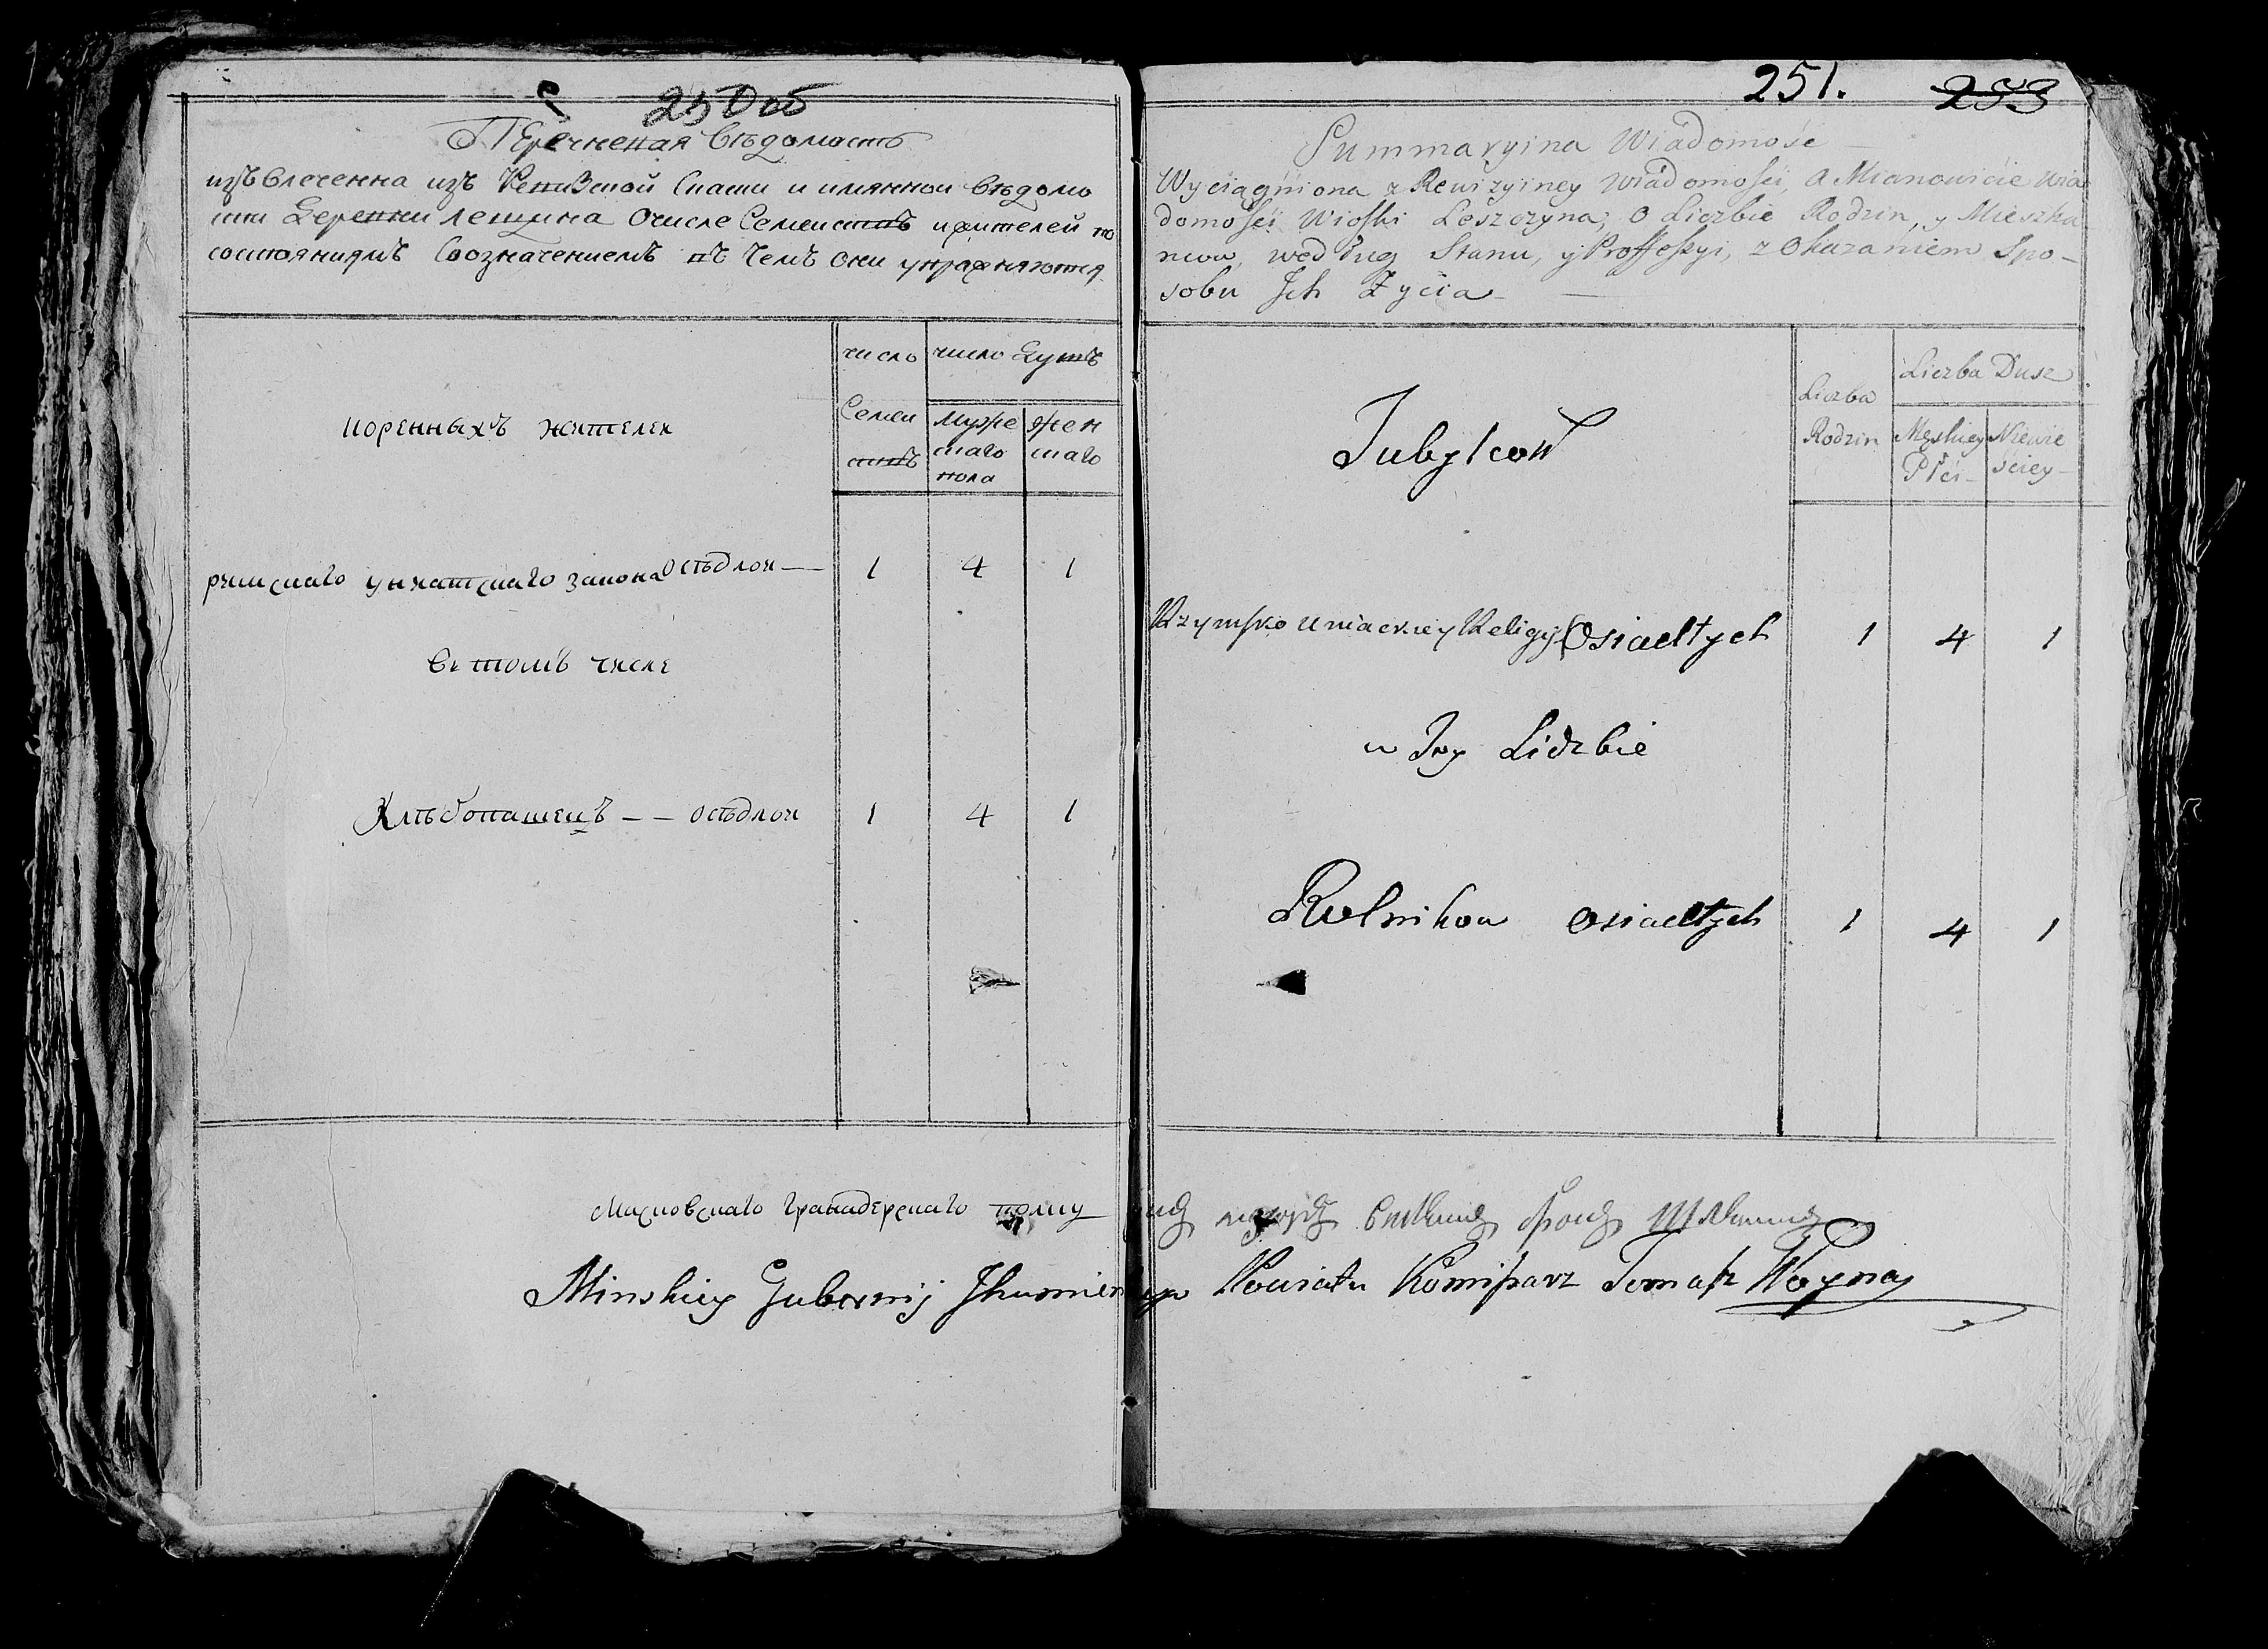 250 об
Перечневая вѣдомость
извлеченна изъ Ревизской Сказки и имянной вѣдомо
сти Деревни лещина Очисле Семействъ ижителей по
состояниямъ Соозначениемъ въ чемъ они упражняются
коренныхъ жителей
число Семействъ
число Душъ
мужескаго пола
женскаго
римскаго униатскаго закона осѣдлои — 1 4 1
въ томъ числе
Хлѣбопашецъ — — осѣдлои 1 4 1
Московскаго гранадерскаго полку
251. 253
Summaryina Wiadomosc
Wyciągniona z Rewizyiney Wiadomości, a Mianowicie Wia
domości Wioski Leszczyna, o Liczbie Rodzin, y Mieszka
ncow, według Stanu, y Proffessyi, z Okazaniem Spo-
sobu Ich Zycia
Tubylcow
Liczba Rodzin
Liczba Dusz
Męskiey Płci
Niewieściey
Rzymsko Uniackiey Religyi Osiadłych 1 4 1
w Tey Liczbie
Rolnikow osiadłych 1 4 1
Minskiey Gubernij Ihumienskiego Powiatu Komissarz Tomasz Woyna